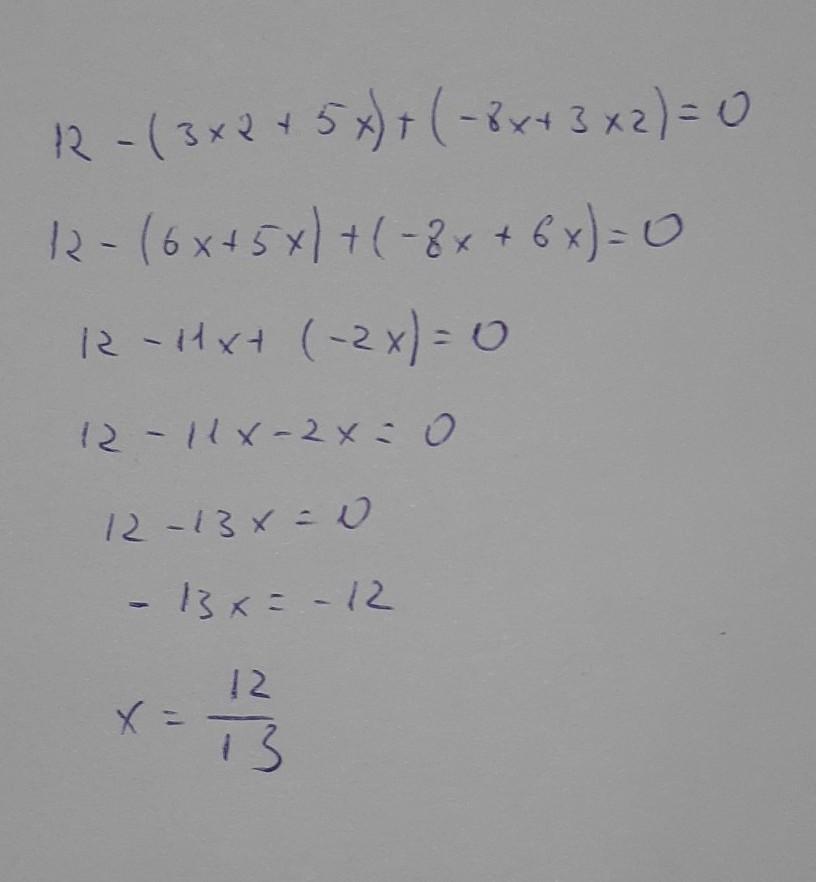 12 - (3x2 + 5x) + (-8x + 3x2) = 0
12 - (6x + 5x) + (-8x + 6x) = 0
12 - 11x + (-2x) = 0
12 - 11x - 2x = 0
12 - 13x = 0
- 13x = -12
x = 12/13